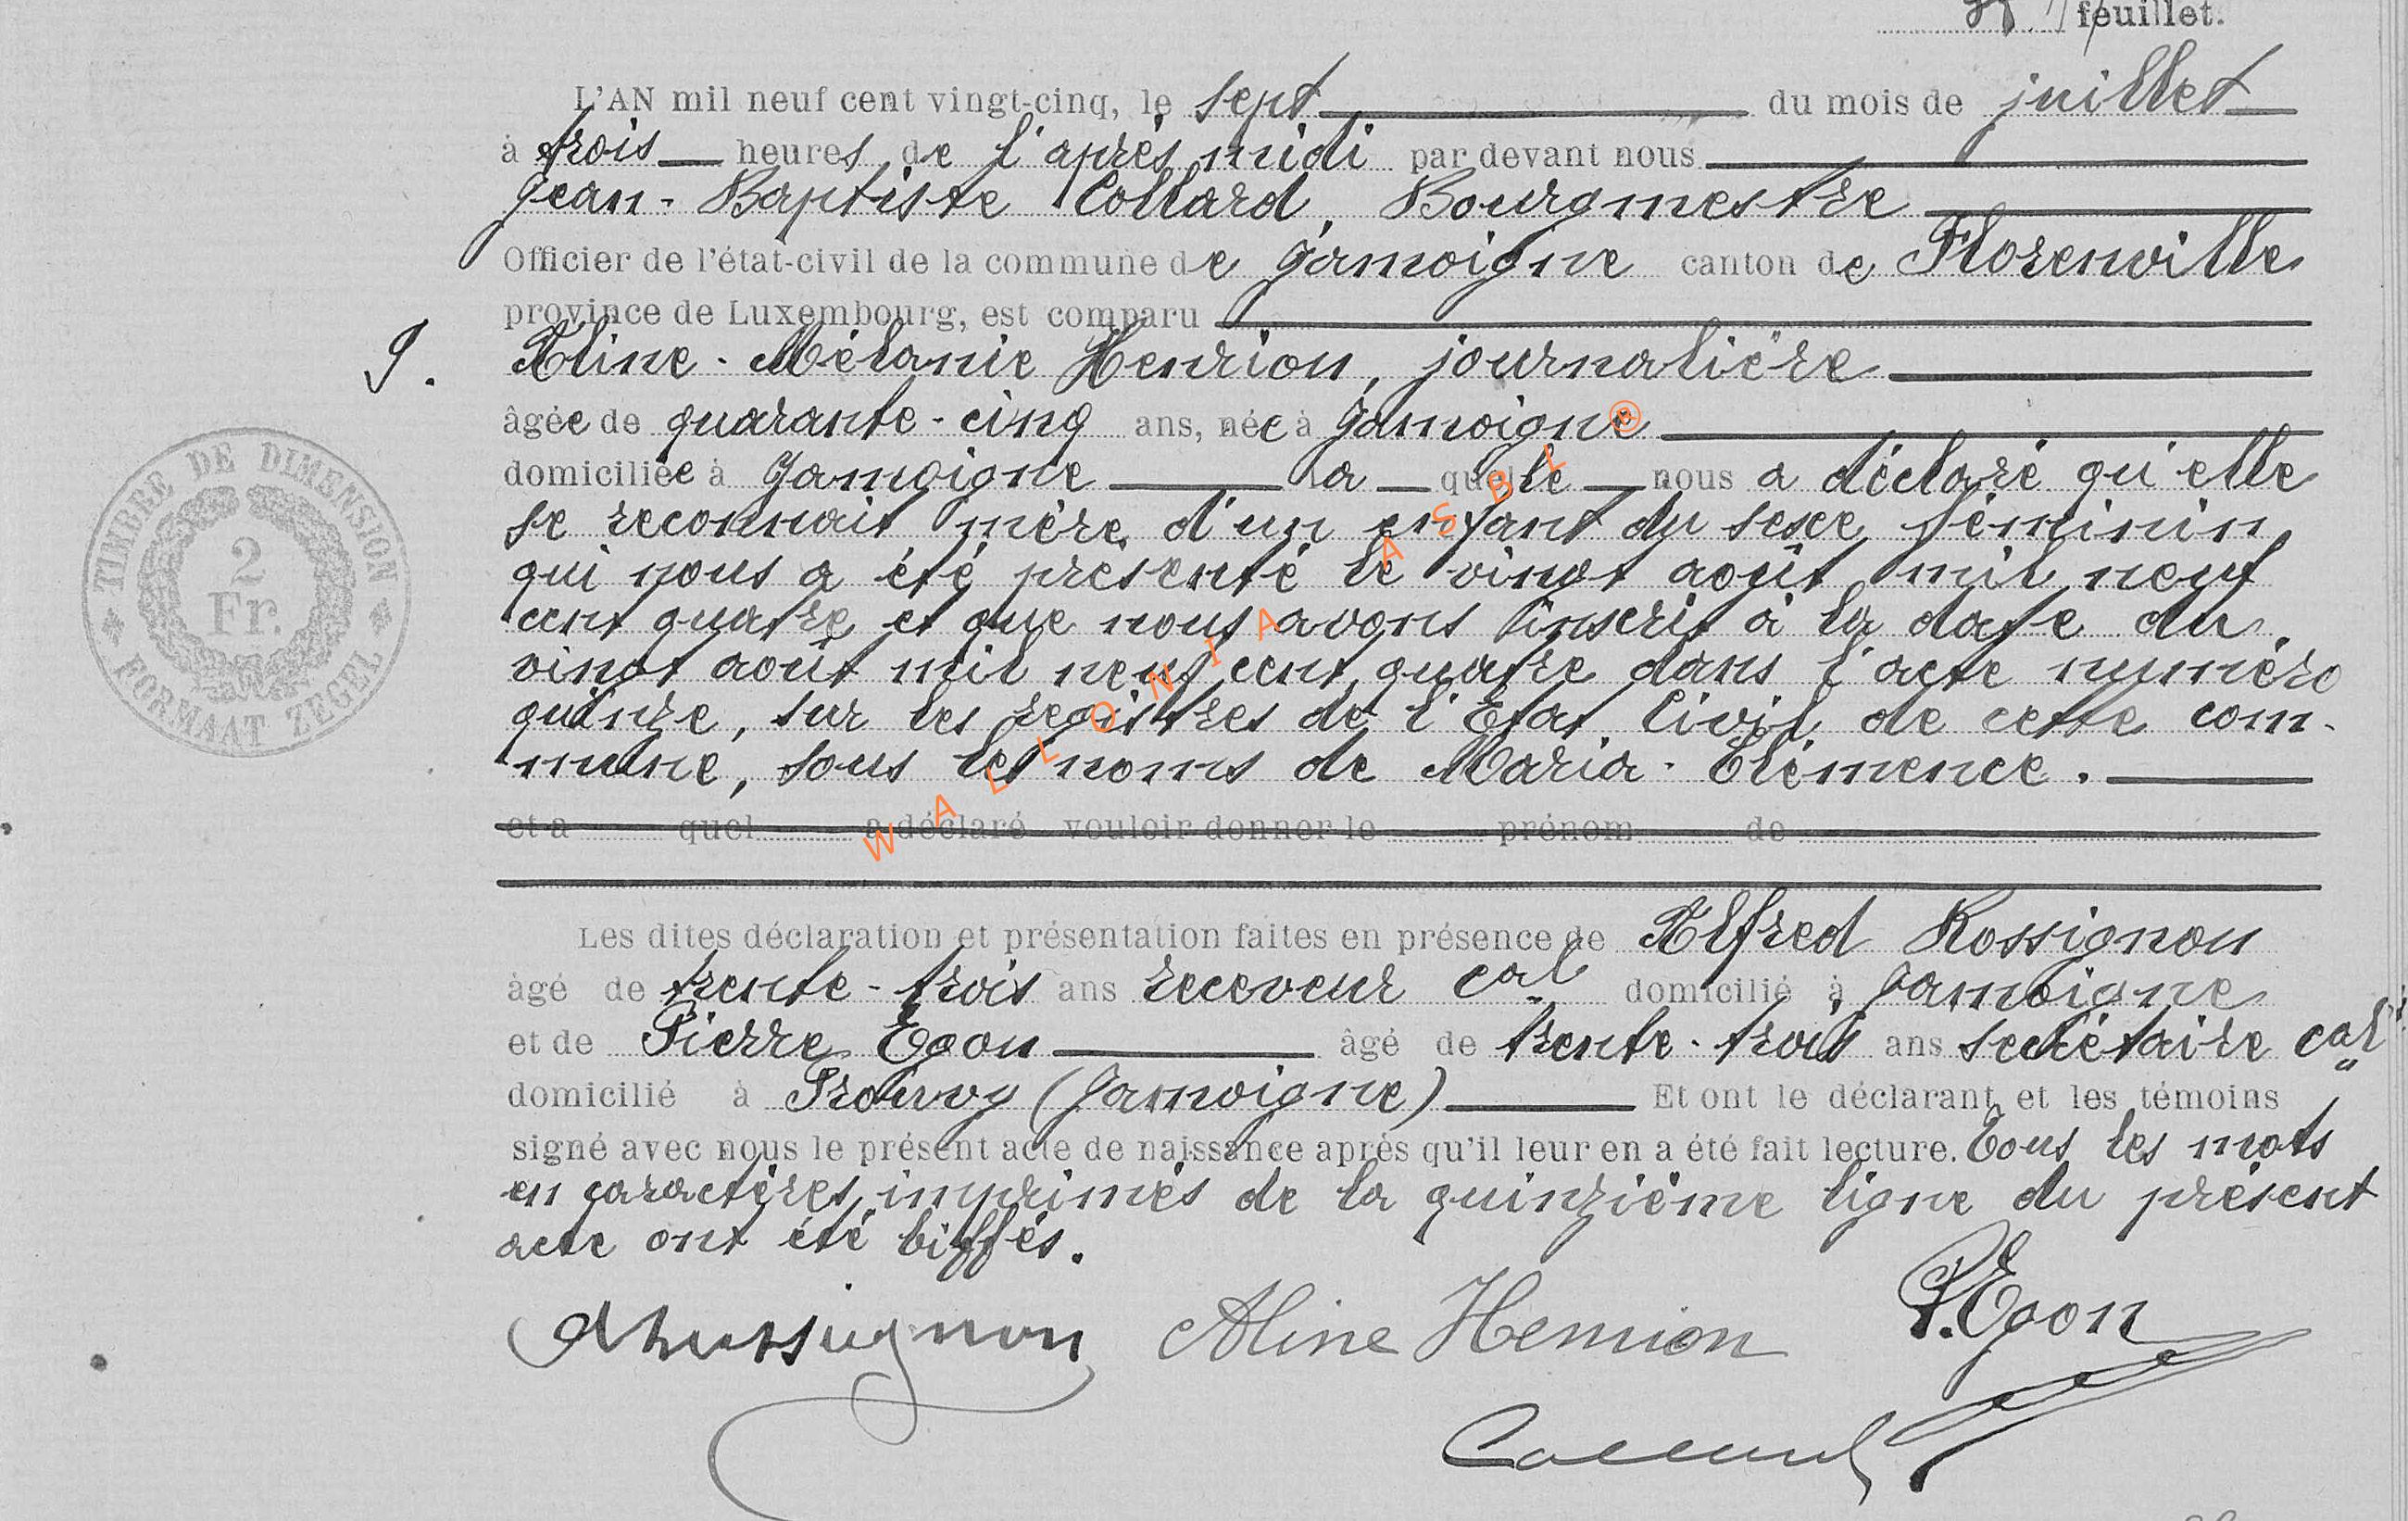 feuillet.
L'AN mil neuf cent vingt-cinq, le sept du mois de juillet
à trois heures de l'après midi par devant nous
Jean-Baptiste Collard, Bourgmestre
Officier de l'état-civil de la commune de Jamoigne canton de Florenville
province de Luxembourg, est comparu
9. Aline-Mélanie Henrion, journalière
âgée de quarante-cinq ans, née à Jamoigne
domiciliée à Jamoigne la quelle nous a déclaré qu'elle
se reconnait mère d'un enfant du sexe féminin
qui nous a été présenté le vingt août mil neuf
cent quatre et que nous avons inscrit à la date du
vingt août mil neuf cent quatre dans l'acte numéro
quinze, sur les registres de l'Etat Civil de cette com-
mune, sous les noms de Maria-Clémence.
et a quel a déclaré vouloir donner le prénom de
Les dites déclaration et présentation faites en présence de Alfred Rossignon
âgé de trente-trois ans receveur cal domicilié à Jamoigne
et de Pierre Egon âgé de trente-trois ans secrétaire cal
domicilié à Prouvy (Jamoigne) Et ont le déclarant et les témoins
signé avec nous le présent acte de naissance après qu'il leur en a été fait lecture. Tous les mots
en caractères imprimés de la quinzième ligne du présent
acte ont été biffés.
ARossignon Aline Henrion P.Egon
Collard
TIMBRE DE DIMENSION
2
Fr.
FORMAAT ZEGEL
WALLONIA ASBL ®